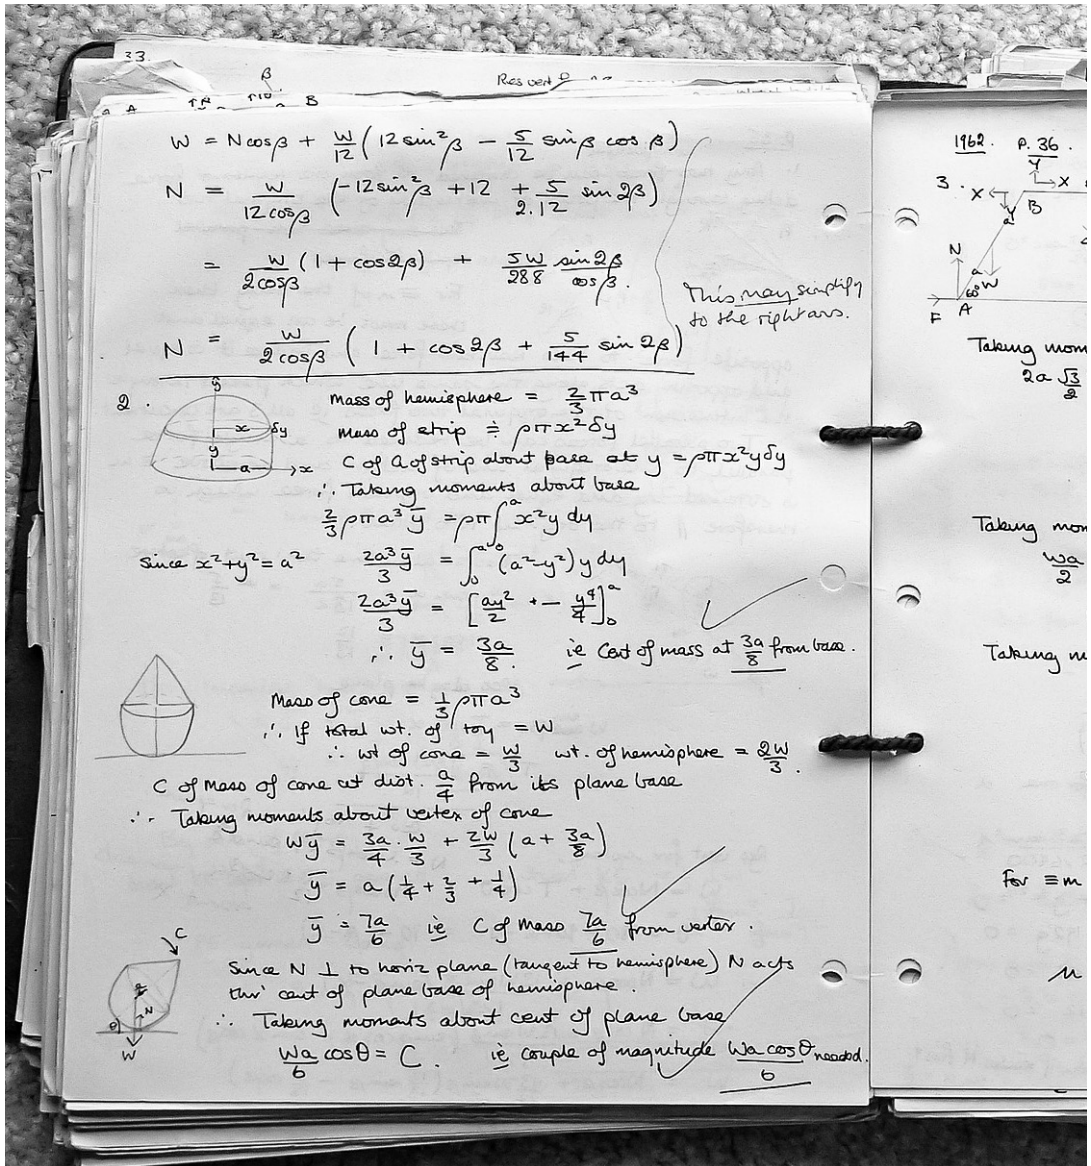 33.
β
Res vert
A
B
W = N cos β + W/12 (12 sin²β − 5/12 sin β cos β)
N = W/12cosβ (−12 sin²β + 12 + 5/2.12 sin 2β)
= W/2cosβ (1 + cos 2β) + 5W/288 sin 2β/cos β.
This may simplify
to the right ans.
N = W/2cosβ (1 + cos 2β + 5/144 sin 2β)
2.
ȳ
x
δy
y
a
x
mass of hemisphere = 2/3 πa³
mass of strip ≑ ρπx²δy
C of G of strip about base at y = ρπx²yδy
∴ Taking moments about base
2/3 ρπa³ȳ = ρπ∫₀ᵃ x²y dy
Since x²+y² = a² 2a³ȳ/3 = ∫₀ᵃ (a²−y²) y dy
2a³ȳ/3 = [ay²/2 + − y⁴/4]₀ᵃ
∴ ȳ = 3a/8. ie Cent of mass at 3a/8 from base.
Mass of cone = 1/3 ρπa³
∴ If total wt. of toy = W
∴ wt of cone = W/3 wt. of hemisphere = 2W/3.
C of Mass of cone at dist. a/4 from its plane base
∴ Taking moments about vertex of cone
Wȳ = 3a/4 . W/3 + 2W/3 (a + 3a/8)
ȳ = a (1/4 + 2/3 + 1/4)
ȳ = 7a/6 ie C of Mass 7a/6 from vertex.
C
N
θ
W
Since N ⊥ to horiz plane (tangent to hemisphere) N acts
thr' cent of plane base of hemisphere.
∴ Taking moments about cent of plane base
Wa/6 cosθ = C. ie couple of magnitude Wa cosθ/6 needed.
1962. P. 36.
3.
Y
X
X
Y
B
a
N
a
W
60°
F
A
Taking mom
2a √3/2
Taking mom
Wa/2
Taking m
For ≡m
μ